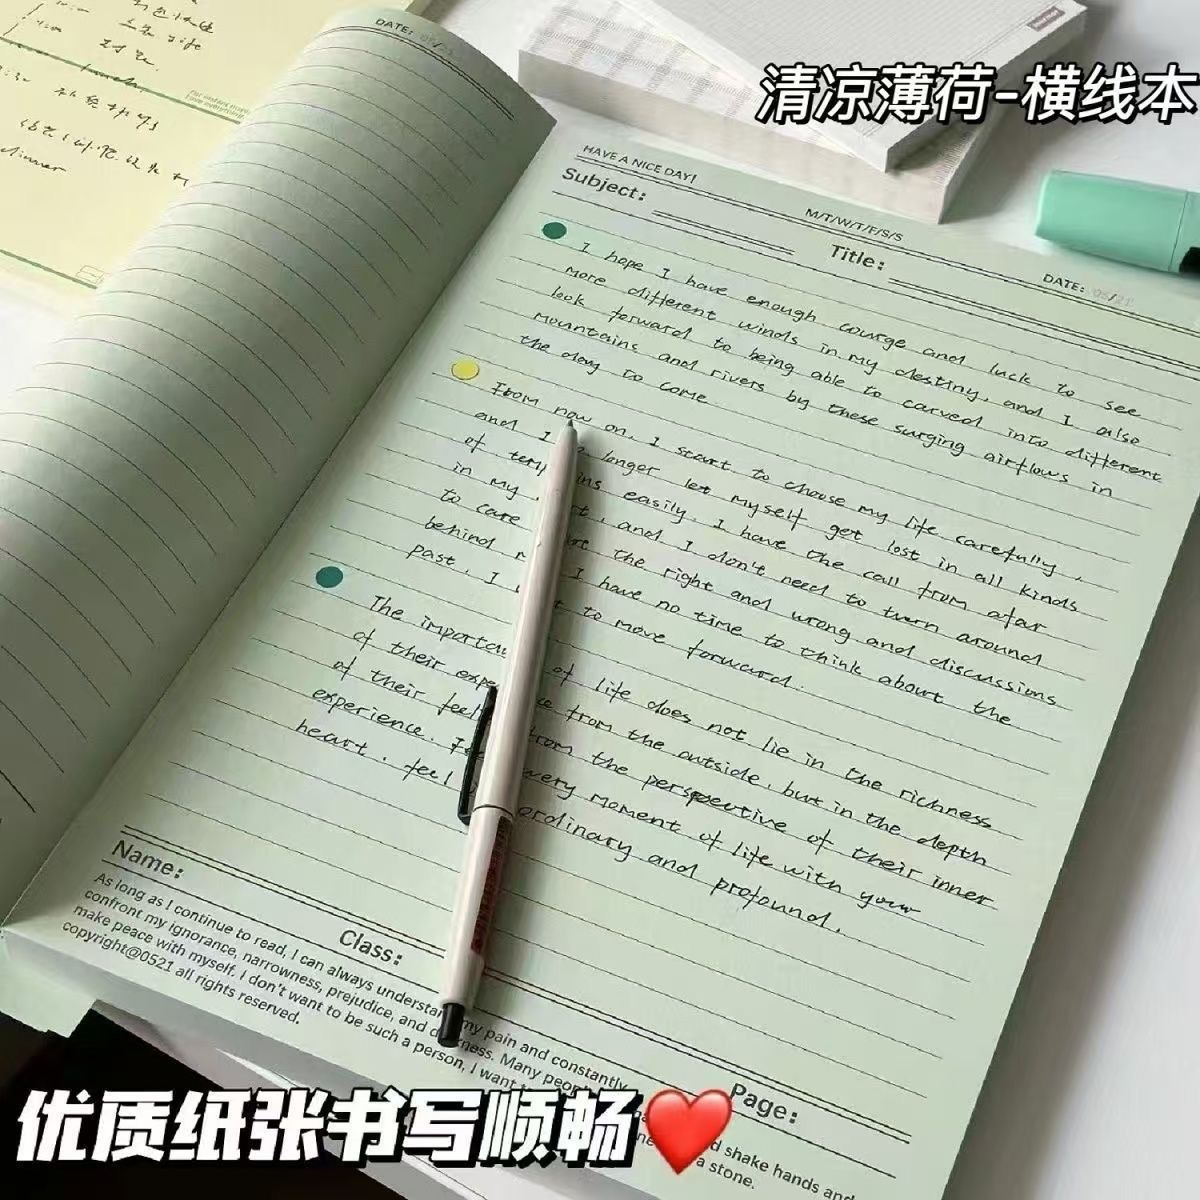 清凉薄荷-横线本
HAVE A NICE DAY!
M/T/W/T/F/S/S
Subject:
Title:
DATE: 05/21
DATE:
I hope I have enough courge and luck to see
more different winds in my destiny, and I also
look forward to being able to carved into different
mountains and rivers by these surging airflows in
the day to come
From now on, I start to choose my life carefully,
and I longer let myself get lost in all kinds
of easily. I have the call from afar
in my , and I don't need to turn around
to care the right and wrong and discussions
behind I have no time to think about the
past, I to move forward.
The of life does not lie in the richness
of their from the outside, but in the depth
of their from the perspective of their inner
experience. very moment of life with your
heart. feel ordinary and profound.
Name:
Class:
Page:
As long as I continue to read, I can always my pain and constantly
confront my ignorance, narrowness, prejudice, and Many
make peace with myself. I don't want to be such a person, I want shake hands and
copyright@0521 all rights reserved. a stone.
dinner
优质纸张书写顺畅❤